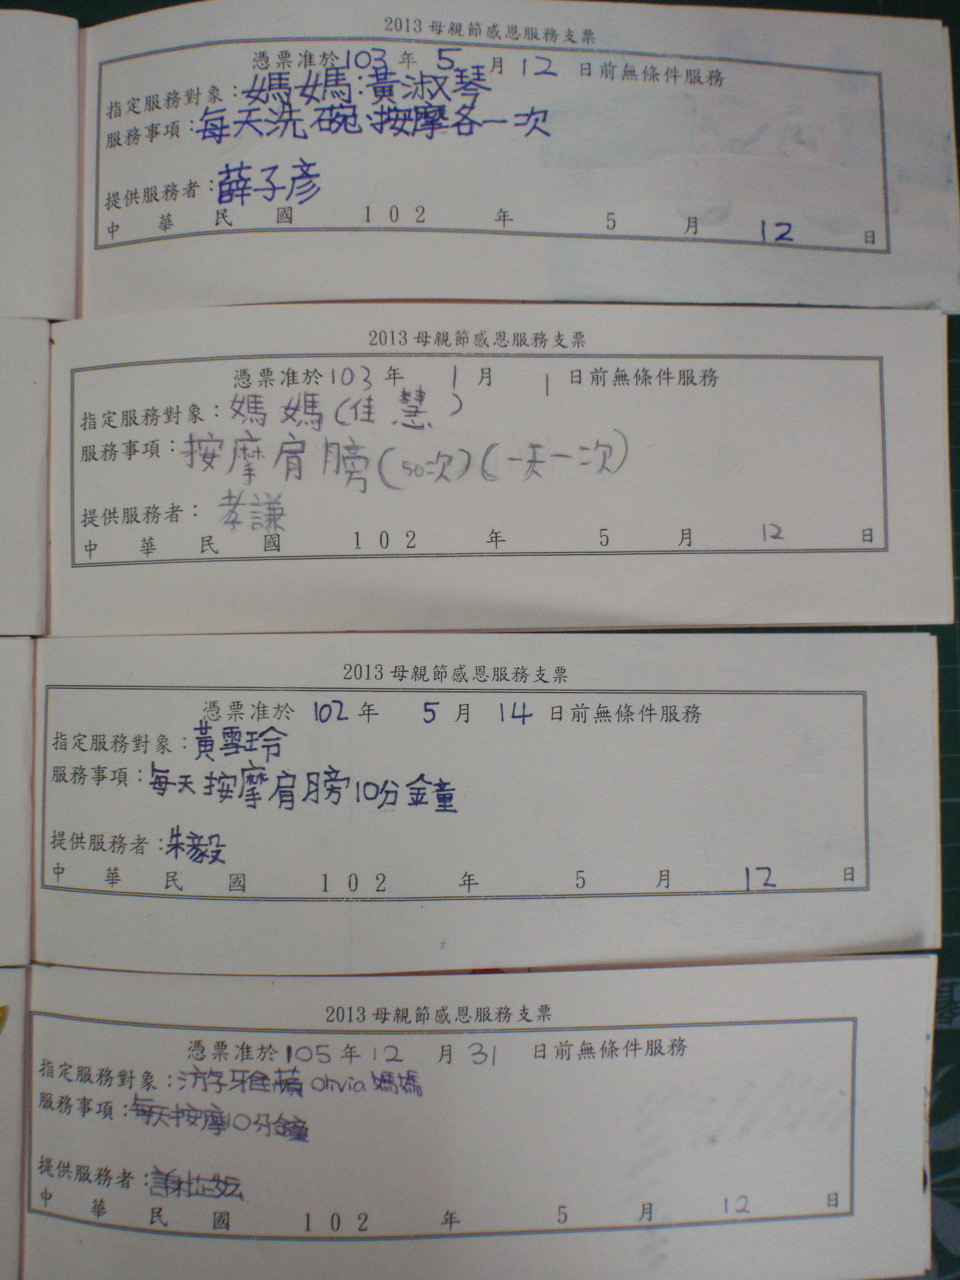 2013 母親節感恩服務支票
憑票准於103年 5 月 12 日前無條件服務
指定服務對象：媽媽：黃淑琴
服務事項：每天洗碗.按摩各一次
提供服務者：薛子彥
中 華 民 國 102 年 5 月 12 日
2013 母親節感恩服務支票
憑票准於103年 1 月 1 日前無條件服務
指定服務對象：媽媽(佳慧)
服務事項：按摩肩膀(50次)(一天一次)
提供服務者：孝謙
中 華 民 國 102 年 5 月 12 日
2013 母親節感恩服務支票
憑票准於 102 年 5 月 14 日前無條件服務
指定服務對象：黃雪玲
服務事項：每天按摩肩膀10分金童
提供服務者：朱毅
中 華 民 國 102 年 5 月 12 日
2013 母親節感恩服務支票
憑票准於105年 12 月 31 日前無條件服務
指定服務對象：游雅蘋 Olivia 媽媽
服務事項：每天按摩10分鐘
提供服務者：
中 華 民 國 102 年 5 月 12 日